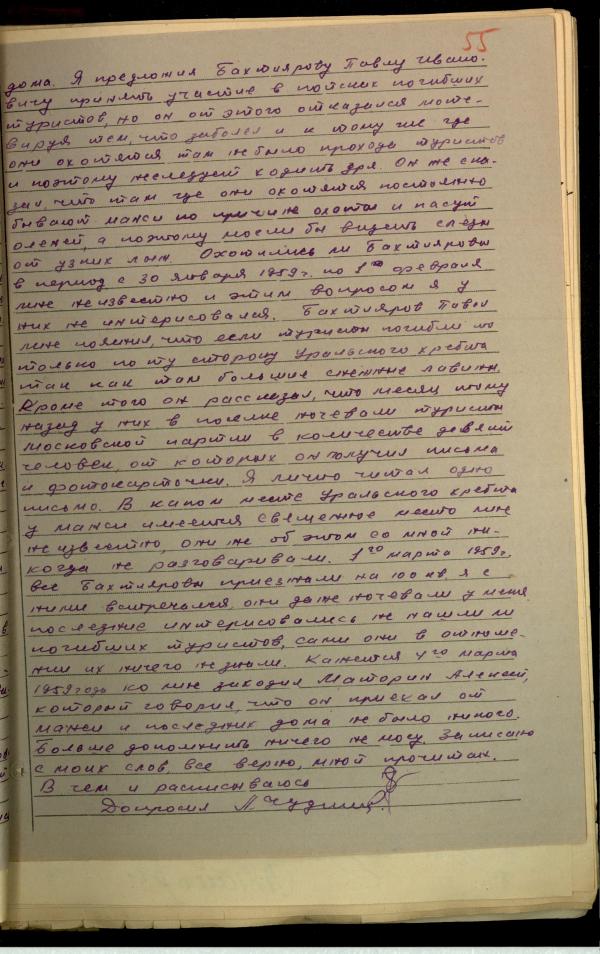 55
дома. Я предложил Бахтиярову Павлу Ивано-
вичу принять участие в поисках погибших
туристов, но он от этого отказался моти-
вируя тем, что заболел и к тому же где
они охотятся там не было прохода туристов
и поэтому не следует ходить зря. Он же ска-
зал, что там где они охотятся постоянно
бывают манси по причине охоты и пасут
оленей, а поэтому могли бы видеть следы
от узких лыж. Охотились ли Бахтияровы
в период с 30 января 1959г. по 1е февраля
мне неизвестно и этим вопросом я у
них не интерисовался. Бахтияров Павел
мне пояснил, что если туристы погибли то
только по ту сторону Уральского хребта
так как там большие снежные лавины.
Кроме того он рассказал, что месяц тому
назад у них в поселке ночевали туристы
московской партии в количестве девяти
человек, от которых он получил письма
и фотокарточки. Я лично читал одно
письмо. В каком месте Уральского хребта
у манси имеется священное место мне
неизвестно, они же об этом со мной ни-
когда не разговаривали. 1го марта 1959г.
все Бахтияровы приезжали на 100 кв, я с
ними встречался, они даже ночевали у меня
последние интерисовались не нашли ли
погибших туристов, сами они в отноше-
нии их ничего не знали. Кажется 4го марта
1959 года ко мне заходил Маторин Алексей,
который говорил, что он приехал от
манси и последних дома не было никого.
Больше дополнить ничего не могу. Записано
с моих слов, все верно, мной прочитан.
В чем и расписываюсь
Допросил Л. Чудинов